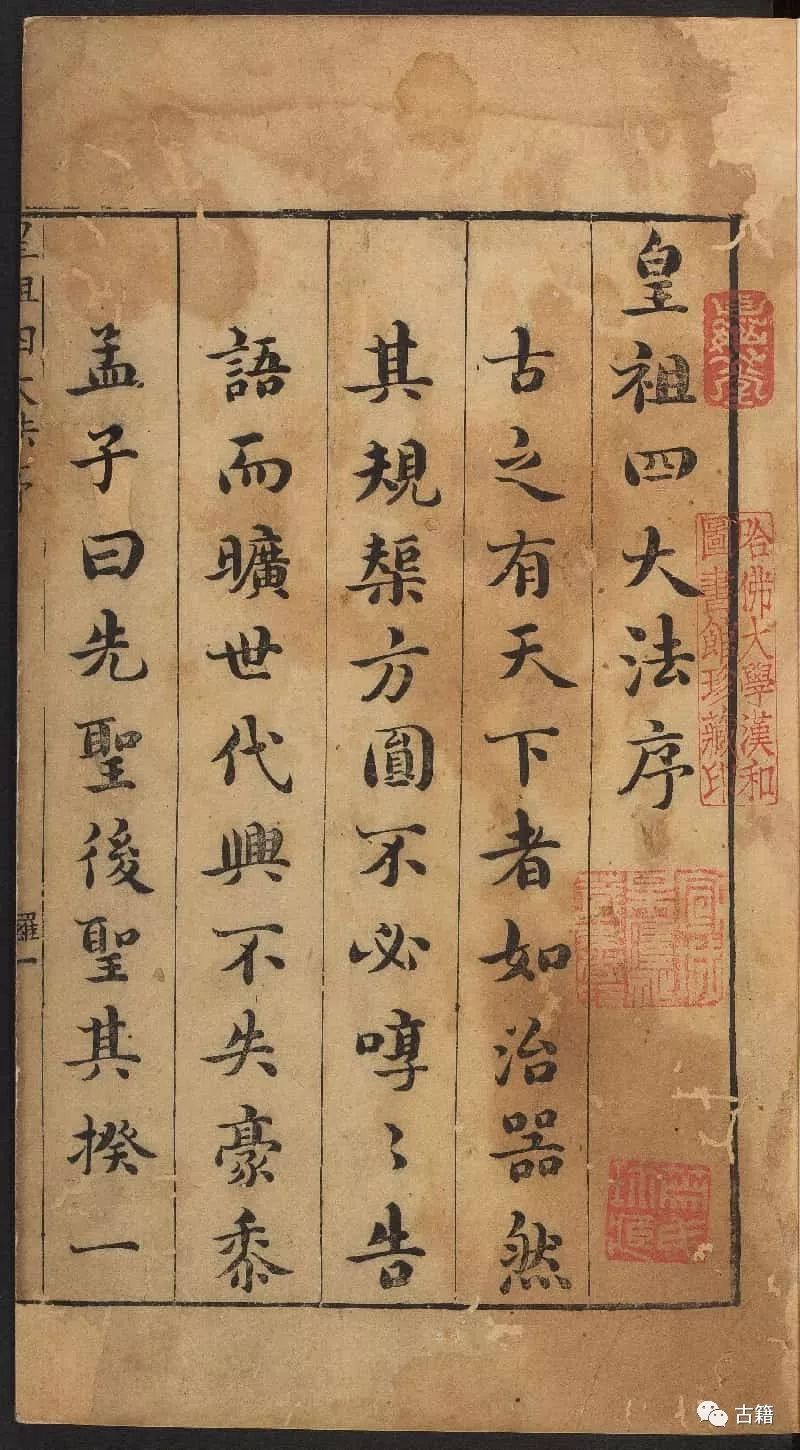 皇祖四大法序
古之有天下者如治器然
其規榘方圓不必啍〻告
語而曠世代興不失豪黍
孟子曰先聖後聖其揆一
皇祖四大法序
羅一
哈佛大學漢和
圖書館珍藏印
古籍